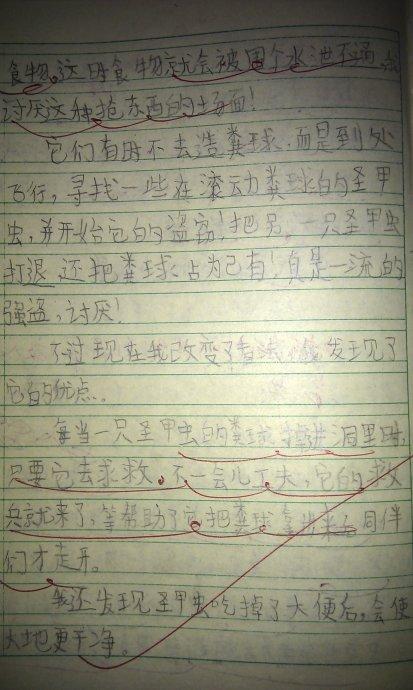 食物。这时食物就会被围个水泄不通,我
讨厌这种抢东西的场面!
它们有时不去造粪球,而是到处
飞行,寻找一些在滚动粪球的圣甲
虫,并开始它的盗窃!把另一只圣甲虫
打退,还把粪球占为己有!真是一流的
强盗,讨厌!
不过现在我改变了看法,我发现了
它的优点。
每当一只圣甲虫的粪球掉进洞里时,
只要它去求救,不一会儿工夫,它的救
兵就来了,等帮助了它把粪球拿出来后同伴
们才走开。
我还发现圣甲虫吃掉了大便后,会使
大地更干净。